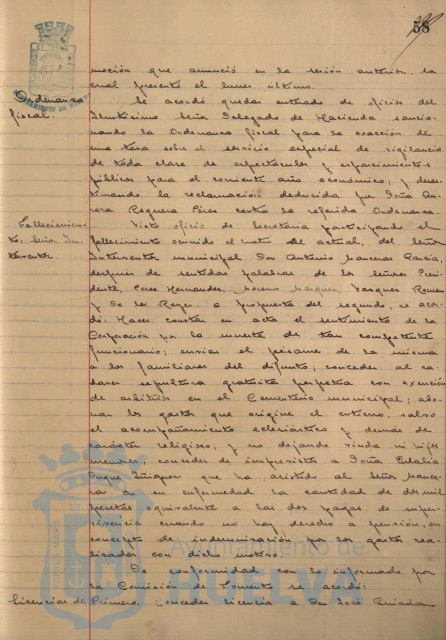 58
moción que anunció en la sesión anterior, la
cual presentó el lunes último.
Ordenanza
fiscal.
Se acordó quedar enterado de oficio del
Ilustrísimo Señor Delegado de Hacienda sancio-
nando la Ordenanza fiscal para la exacción de
una tasa sobre el servicio especial de vigilancia
de toda clase de espectáculos y esparcimientos
públicos para el corriente año económico; y deses-
timando la reclamación deducida por Doña Au-
rora Requena Pérez contra la referida Ordenanza.
Fallecimien-
to: Señor In-
terventor.
Visto oficio de Secretaría participando el
fallecimiento ocurrido el cuatro del actual, del Señor
Interventor municipal Don Antonio García,
después de sentidas palabras de los Señores Presi-
dente, Pérez Hernández, Moreno Márquez, Vázquez Romero
y de los Reyes, a propuesta del segundo, se acor-
dó: Hacer constar en acta el sentimiento de la
Corporación por la muerte de tan competente
funcionario; enviar el pésame de la misma
a los familiares del difunto; conceder al ca-
dáver sepultura gratuita perpetua con exención
de arbitrios en el Cementerio municipal; abo-
nar los gastos que origine el entierro, salvo
el acompañamiento eclesiástico y demás de
carácter religioso; y no dejando viuda ni hijos
menores, conceder de imprevistos a Doña Eulalia
Duque que ha asistido al Señor
en su enfermedad la cantidad de dos mil
pesetas equivalente a las dos pagas de super-
vivencia cuando no hay derecho a pensión, en
concepto de indemnización por los gastos rea-
lizados con dicho motivo.
De conformidad con lo informado por
la Comisión de Fomento se acordó:
Licencias de
Primero: Conceder licencia a Don José
Ayuntamiento de
HUELVA